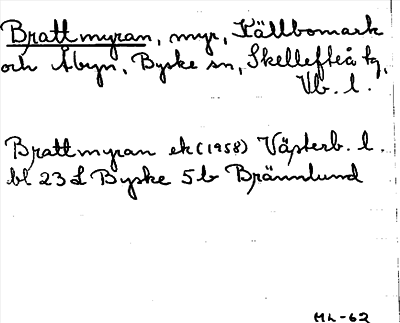 Brattmyran, myr, Källbomark
och Åbyn, Byske sn, Skellefteå tg,
Vb. l.
Brattmyran ek (1958) Västerb. l.
bl 23 L Byske 5 b Brännlund
ML-62